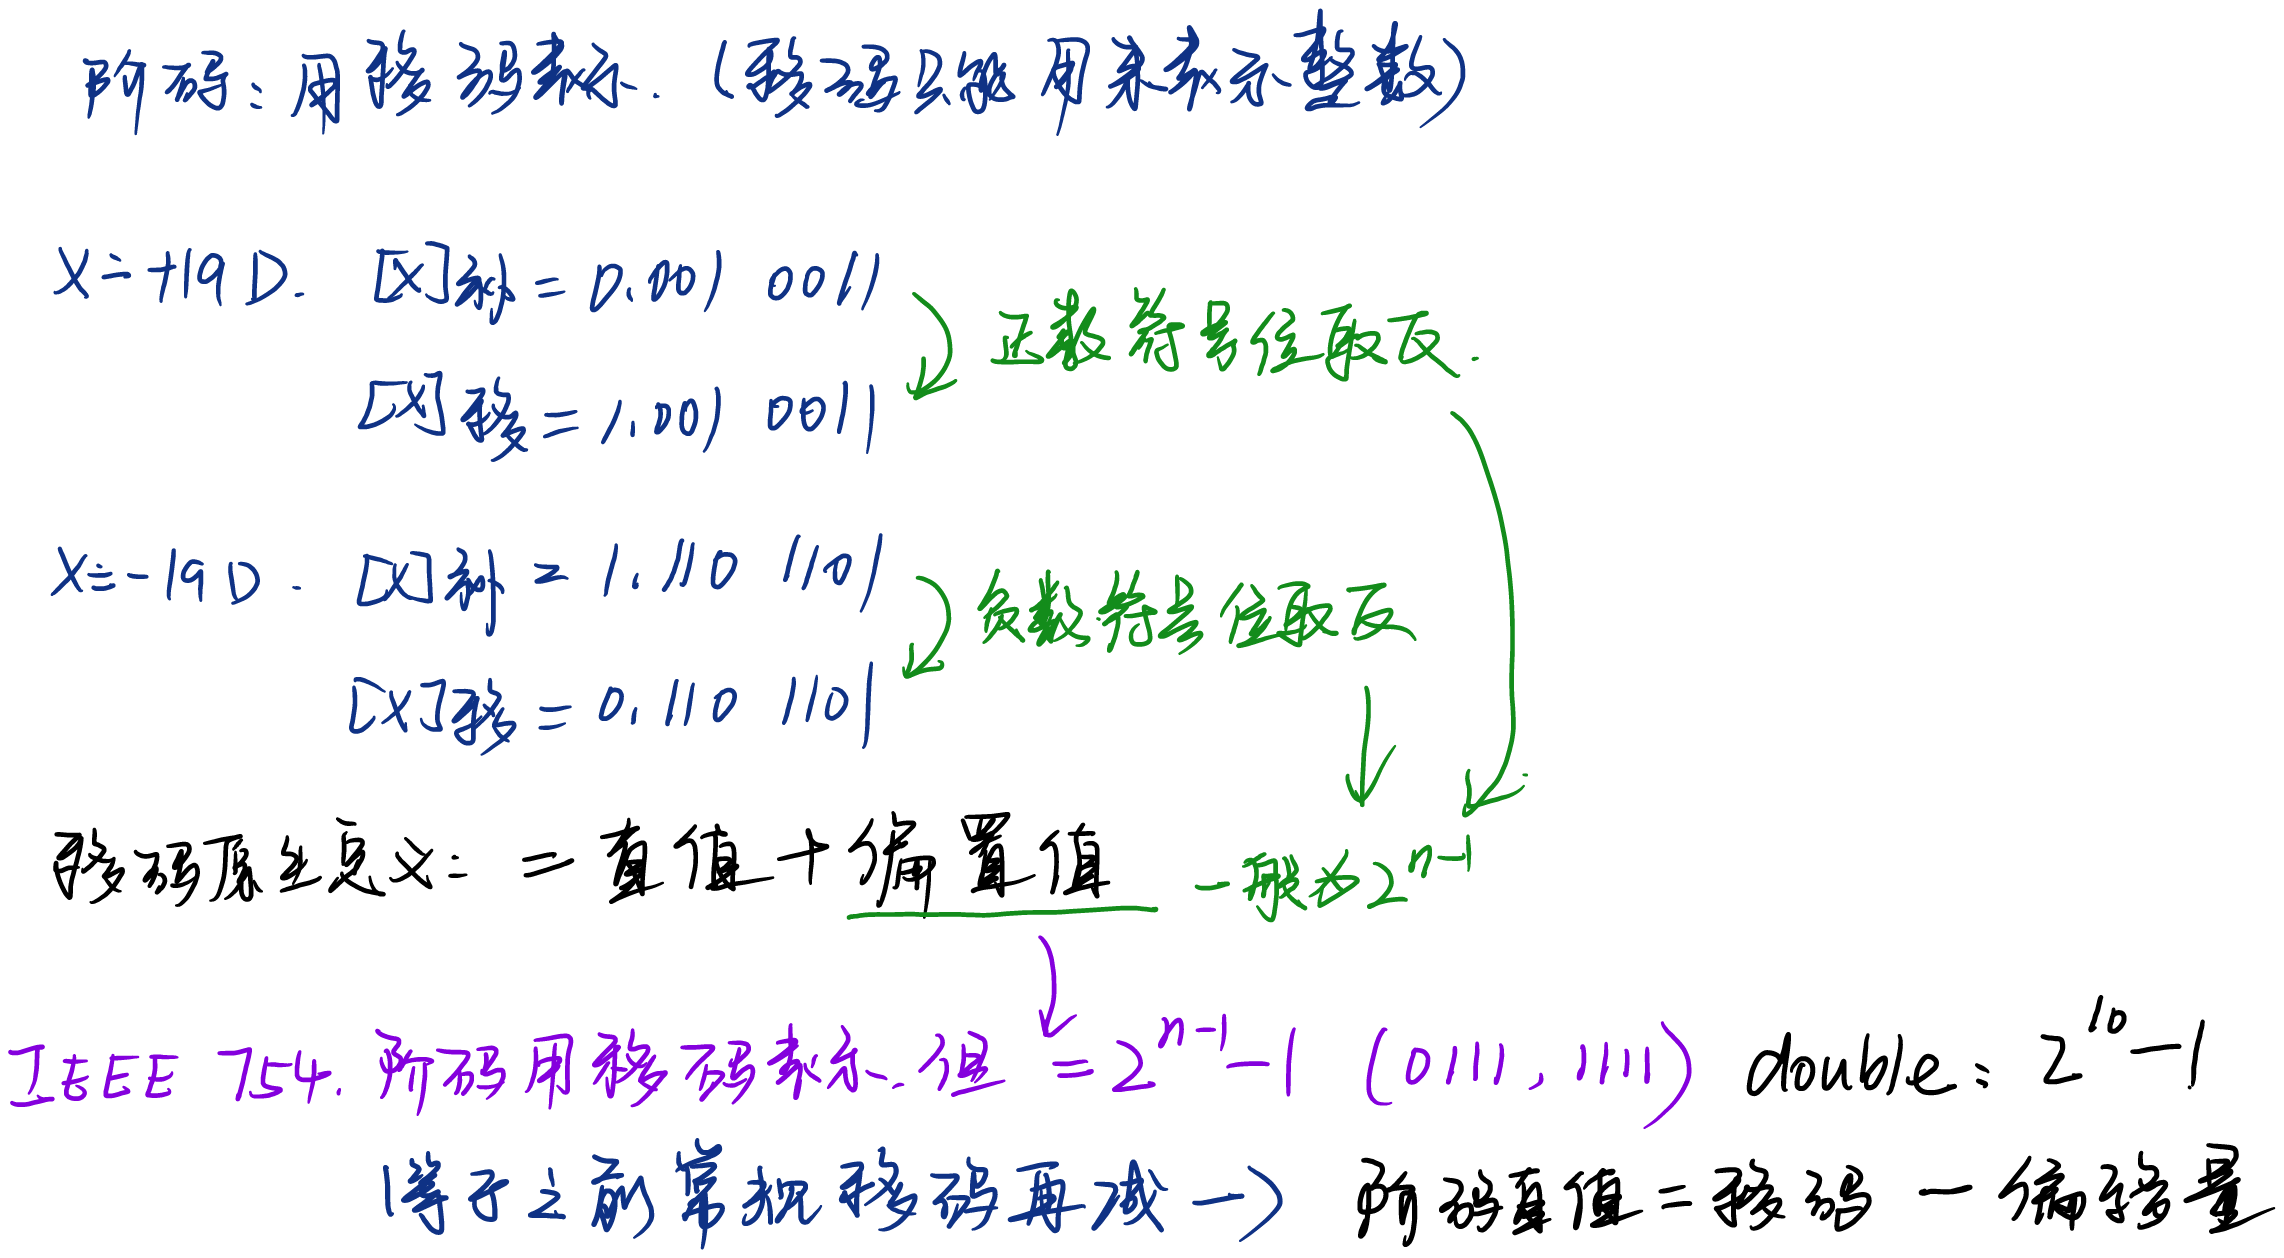 阶码：用移码表示.（移码只能用来表示整数）
X=+19D. [X]补=0.001 0011
正数符号位取反.
[X]移=1.001 0011
X=-19D. [X]补=1.110 1101
负数符号位取反
[X]移=0.110 1101
移码原生定义：=真值+偏置值 一般为2^{n-1}
IEEE 754.阶码用移码表示.但=2^{n-1}-1 (0111,1111) double：2^{10}-1
(等于之前常规移码再减一) 阶码真值=移码-偏移量